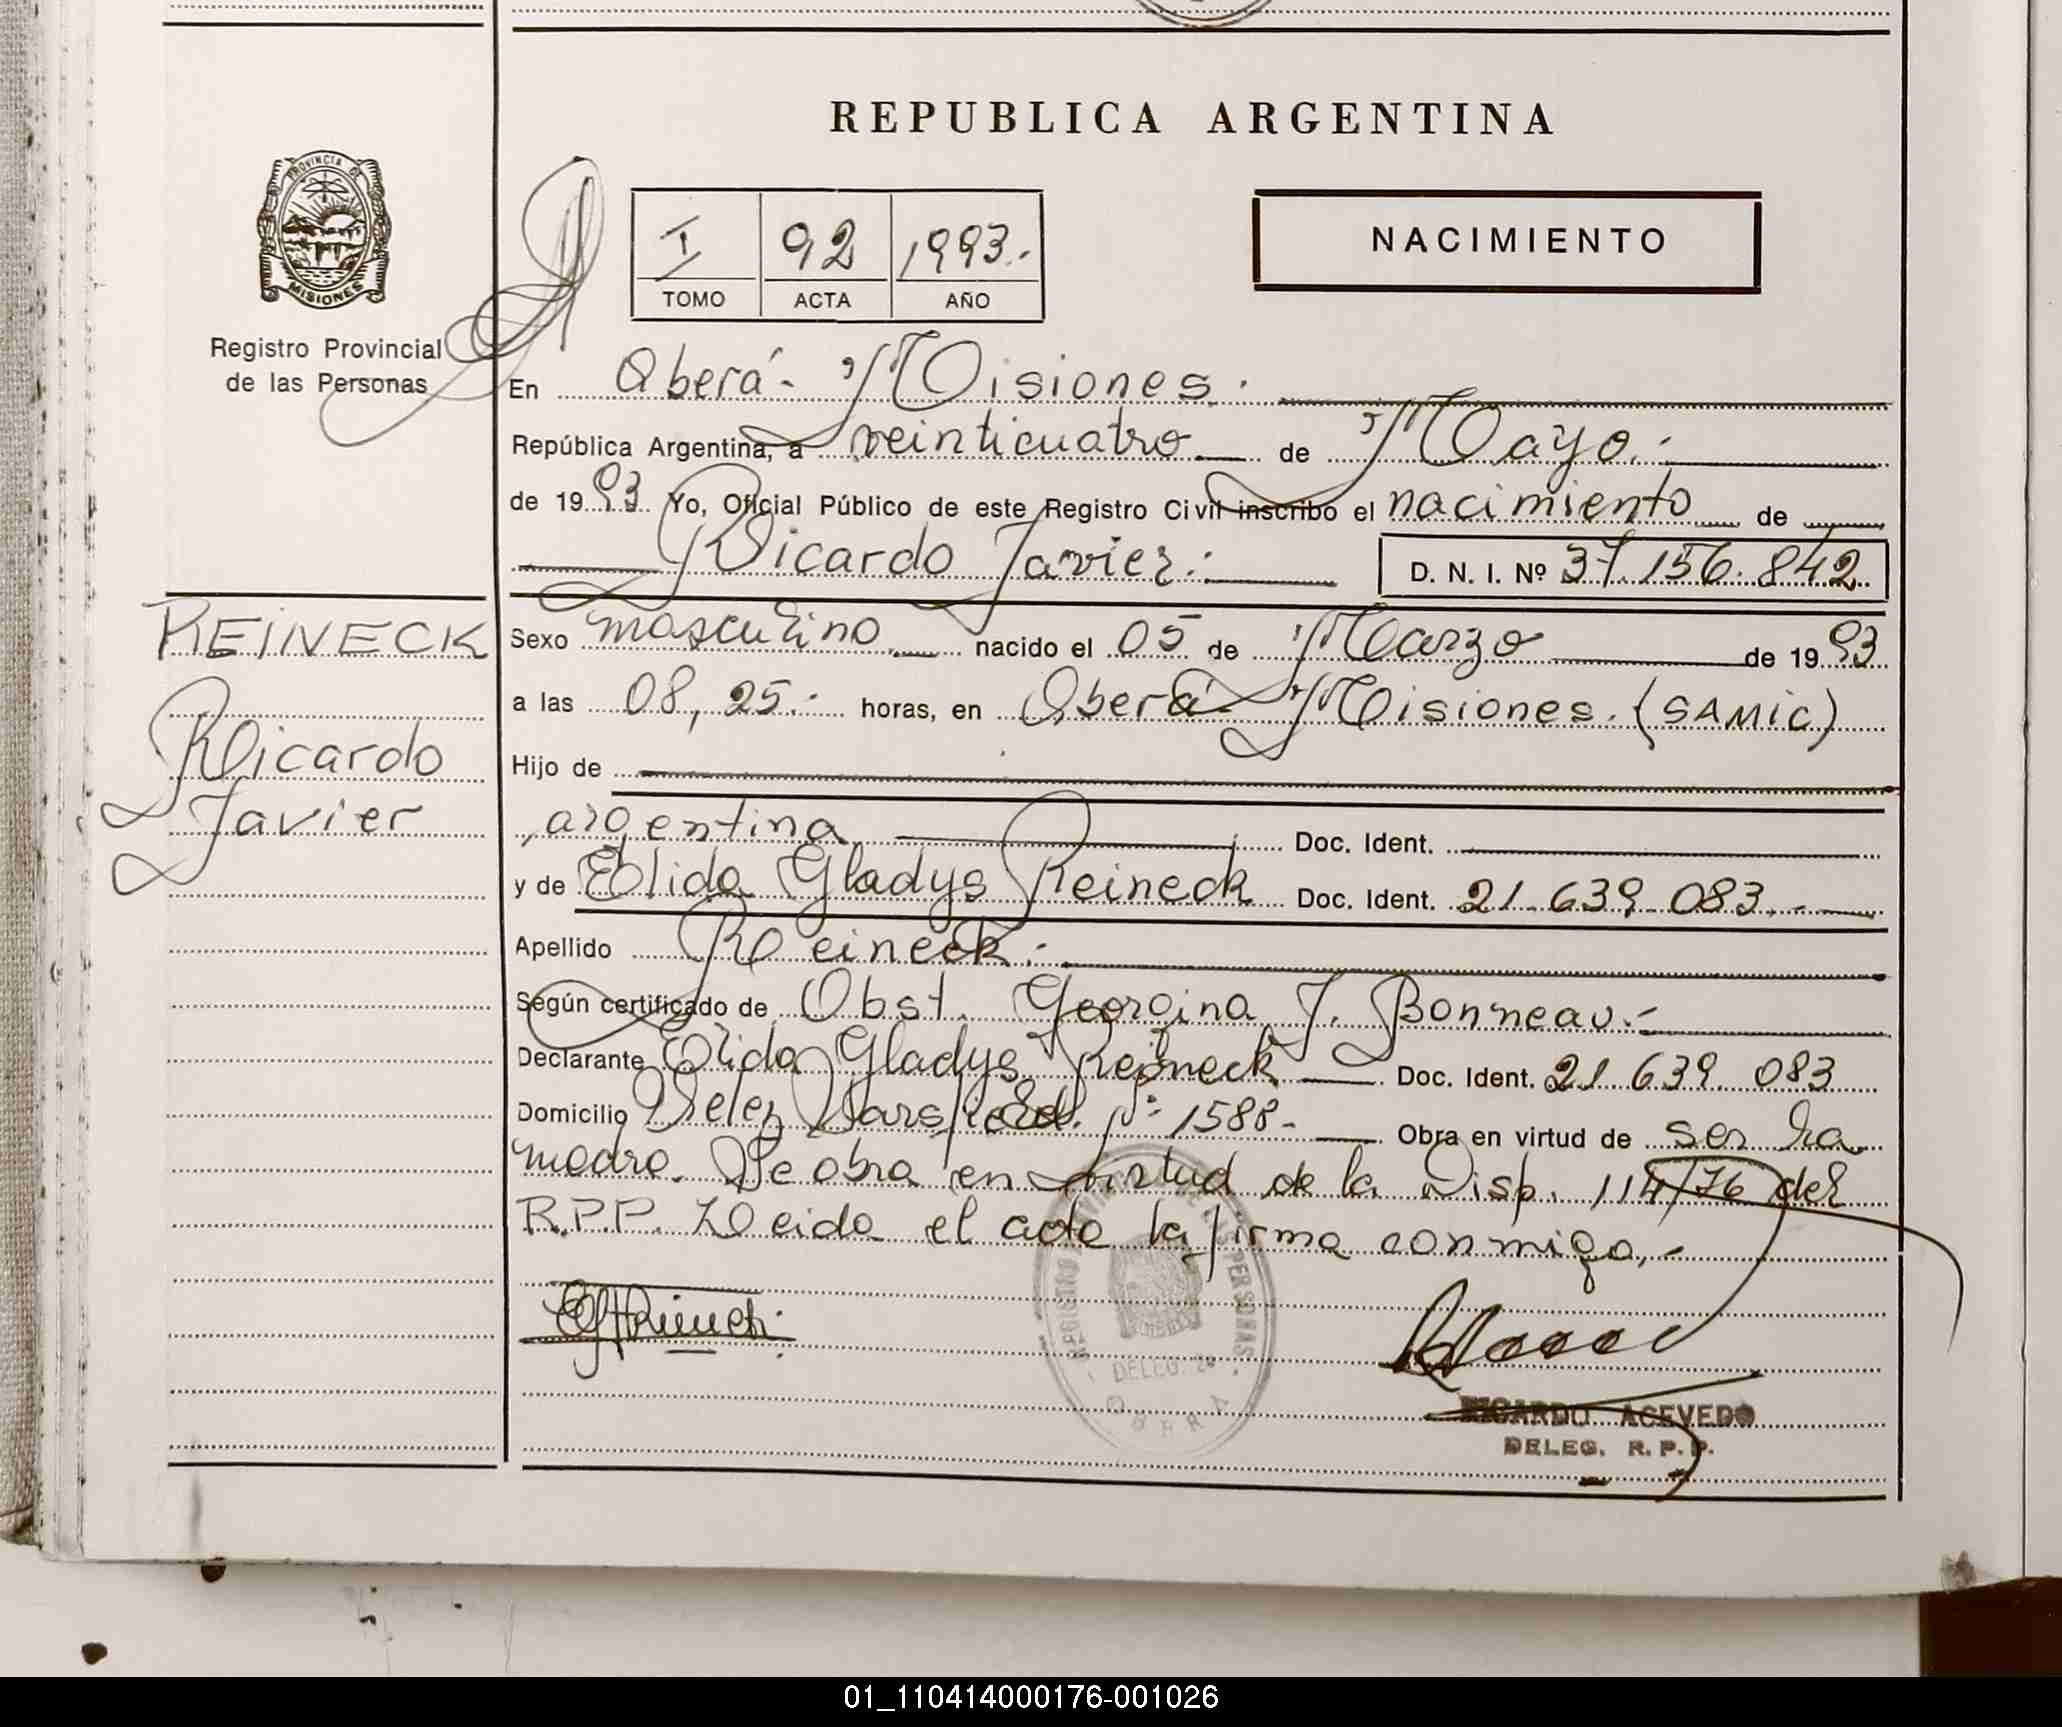 REPUBLICA ARGENTINA
PROVINCIA DE
MISIONES
Registro Provincial
de las Personas
I 92 1993.-
TOMO ACTA AÑO
NACIMIENTO
En Oberá- Misiones.
República Argentina, a veinticuatro de Mayo.-
de 1993 Yo, Oficial Público de este Registro Civil inscribo el nacimiento de
Ricardo Javier.- D. N. I. Nº 37.156.842
REINECK
Ricardo
Javier
Sexo masculino nacido el 05 de Marzo de 1993
a las 08,25.- horas, en Oberá- Misiones. (SAMIC)
Hijo de
argentina Doc. Ident.
y de Elida Gladys Reineck Doc. Ident. 21.639.083.-
Apellido Reineck.-
Según certificado de Obst. Georgina J. Bonneau.-
Declarante Elida Gladys Reineck Doc. Ident. 21 639 083
Domicilio Velez Sarsfield. Nº 1588- Obra en virtud de ser la
madre. Se obra en virtud de la Disp. 114/76 del
R.P.P. Leida el acta la firma conmigo,-
REGISTRO DE LAS PERSONAS
DELEG.
OBERA
RICARDO ACEVEDO
DELEG. R. P. P.
01_110414000176-001026